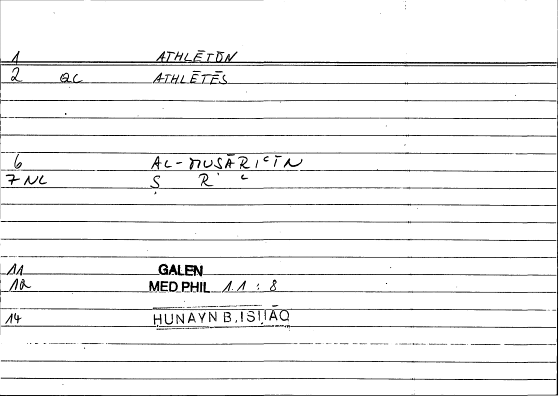 1 ATHLĒTŌN
2 QC ATHLĒTĒS
6 AL-MUṢĀRIʿĪN
7 NL Ṣ R ʿ
11 GALEN
12 MED PHIL 1.1 : 8
14 ḤUNAYN B. ISḤĀQ